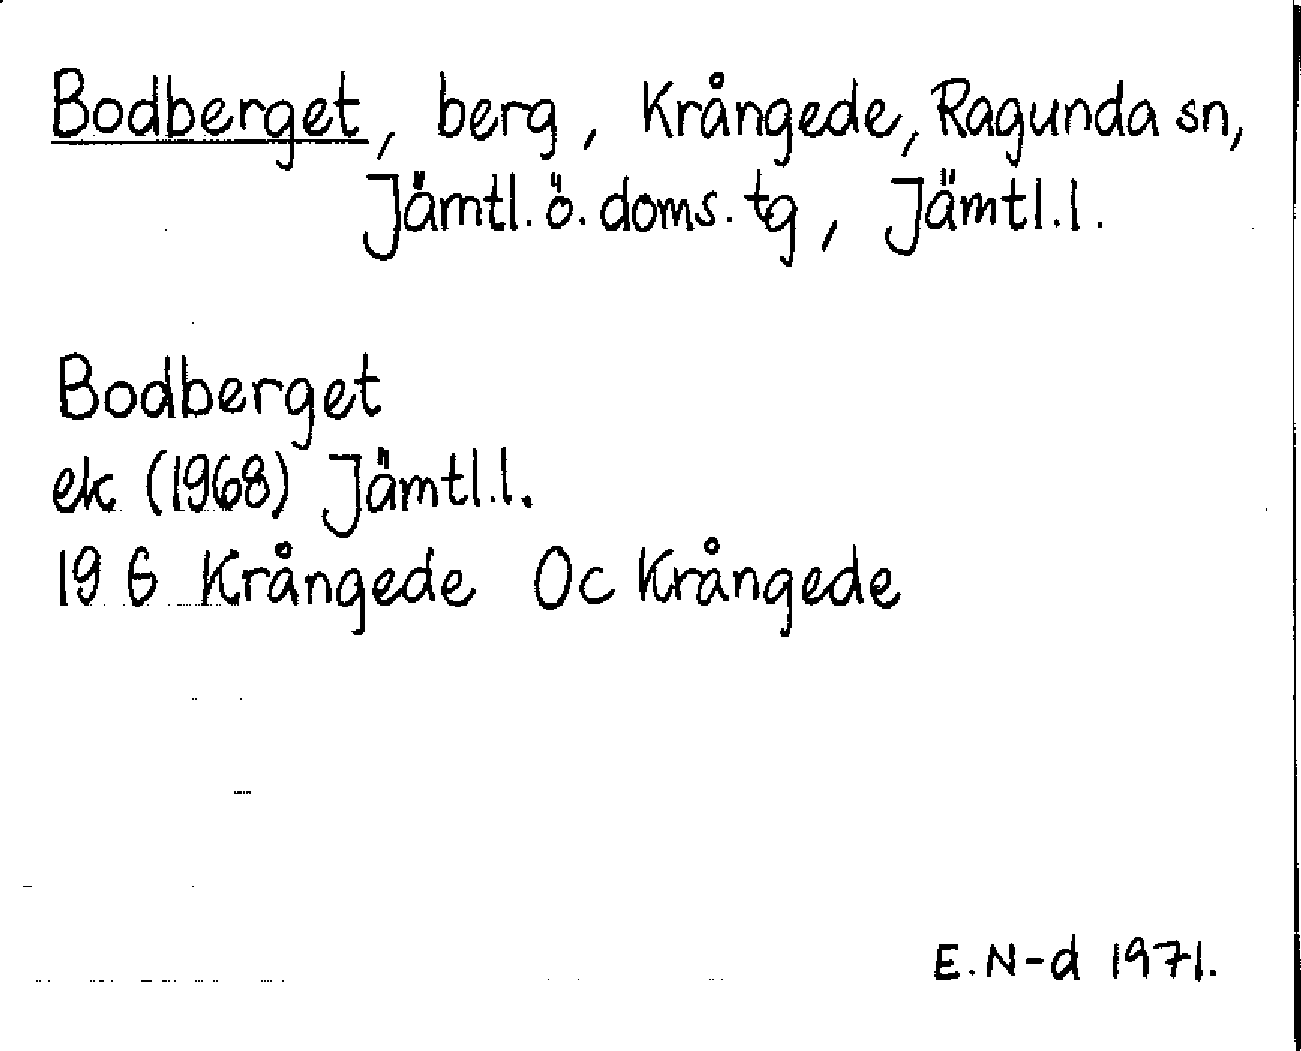 Bodberget, berg, Krångede, Ragunda sn,
Jämtl. ö. doms. tg, Jämtl. l.
Bodberget
ek (1968) Jämtl. l.
19 G Krångede Oc Krångede
E. N-d 1971.